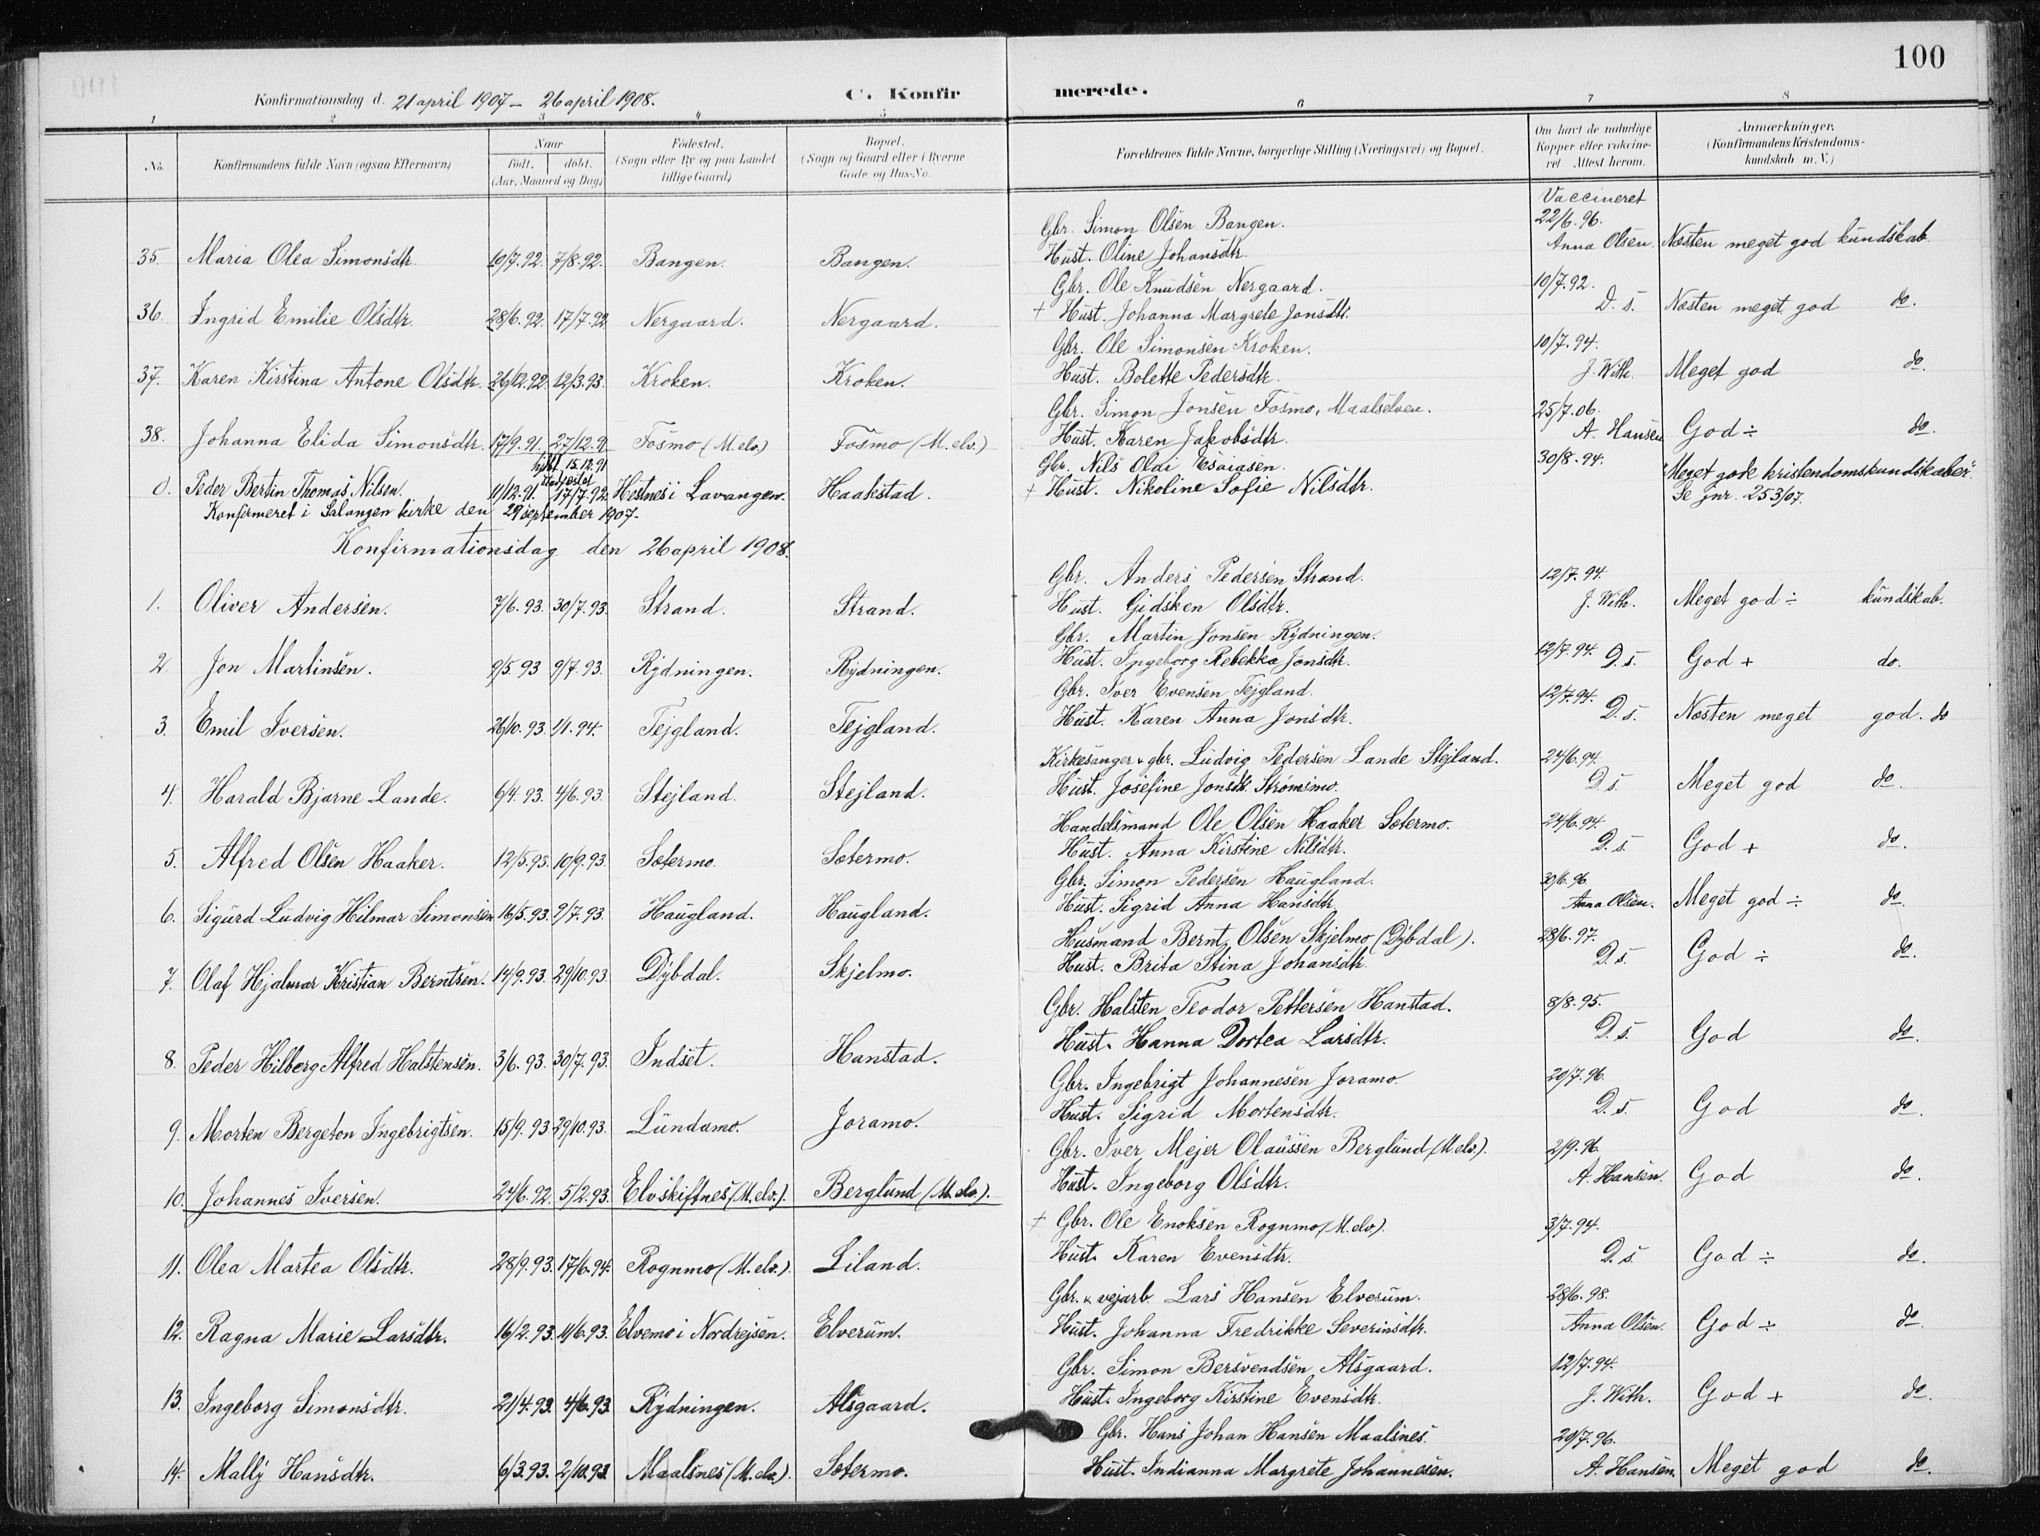 100
Konfirmationsdag d. 21 april 1907 – 26 april 1908.
C. Konfir
merede.
1 2 3 4 5 6 7 8
No.
Konfirmandens fulde Navn (ogsaa Efternavn)
Naar
født, døbt.
(Aar, Maaned og Dag)
Fødested.
(Sogn eller By og paa Landet
tillige Gaard)
Bopæl.
(Sogn og Gaard eller i Byerne
Gade og Hus-No.
Forældrenes fulde Navne, borgerlige Stilling (Næringsvei) og Bopæl.
Om havt de naturlige
Kopper eller vakcine-
ret Attest herom.
Anmærkninger.
(Konfirmandens Kristendoms-
kundskab m. V.)
Vaccineret
Gbr. Simon Olsen Bangen. 22/6. 96.
35. Maria Olea Simonsdtr. 10/7.92. 7/8.92. Bangen. Bangen. Hust. Oline Johansdtr. Anna Olsen. Næsten meget god kundskab
Gbr. Ole Knudsen Nergaard. 10/7.92.
36. Ingrid Emilie Olsdtr. 28/6.92. 17/7.92 Nergaard. Nergaard. + Hust. Johanna Margrete Jonsdtr. D. s. Næsten meget god do.
Gbr. Ole Simonsen Kroken. 10/7.94.
37. Karen Kirstina Antone Olsdtr. 26/12.92 12/3.93. Kroken. Kroken. Hust. Bolette Pedersdtr. J. With. Meget god do.
Gbr. Simon Jonsen Fosmo, Maalselven. 25/7.06.
38. Johanna Elida Simonsdtr. 17/9.91. 27/12.91 Fosmo (M.elv.) Fosmo (M.elv.) Hust. Karen Jakobsdtr. A. Hansen God ÷ do.
hjdbt 15.12.91 Gbr. Nils Oldi Esaiasen. 30/8.94.
0. Peder Bertin Thomas Nilsen. 11/12.91. stadfæstet 17/7.92. Hestnes i Lavangen. Haakstad. + Hust. Nikoline Sofie Nilsdtr. "Meget gode kristendomskundskaber".
Konfirmeret i Salangen kirke den 29 september 1907. Se jnr. 253/07.
Konfirmationsdag den 26 april 1908.
Gbr. Anders Pedersen Strand. 12/7.94.
1. Oliver Andersen. 7/6.93. 30/7.93. Strand. Strand. Hust. Gidsken Olsdtr. J. With. Meget god ÷ kundskab.
Gbr. Martin Jonsen Rydningen.
2 Jon Martinsen. 9/5.93 9/7.93. Rydningen. Rydningen. Hust. Ingeborg Rebekka Jonsdtr. 12/7.94. D. s. God + do.
Gbr. Iver Evensen Tejgland. 12/7.94.
3. Emil Iversen. 26/10.93. 1/1.94. Tejgland. Tejgland. Hust. Karen Anna Jonsdtr. D. s. Næsten meget god. do
Kirkesanger & gbr. Ludvig Pedersen Lande Stejland. 24/6.94.
4. Harald Bjarne Lande. 6/4.93. 4/6.93. Stejland. Stejland. Hust. Josefine Jonsdtr. Strømsmo. D. s. Meget god do.
Handelsmand Ole Olsen Haaker Sætermo. 24/6.94.
5. Alfred Olsen Haaker. 12/5.93. 10/9.93. Sætermo. Sætermo. Hust. Anna Kirstine Nilsdtr. D. s. God + do.
Gbr. Simon Pedersen Haugland. 30/6.96.
6. Sigurd Ludvig Hilmar Simonsen 16/5.93. 9/7.93. Haugland. Haugland. Hust. Sigrid Anna Hansdtr. Anna Olsen. Meget god ÷ do.
Husmand Bernt Olsen Skjelmo (Dybdal). 28/6.97.
7. Olaf Hjalmar Kristian Berntsen. 14/9.93. 29/10.93. Dybdal. Skjelmo. Hust. Brita Stina Johansdtr. D. s. God ÷ do.
Gbr. Halsten Teodor Pettersen Hanstad. 8/8.95.
8. Peder Hilberg Alfred Halstensen. 3/6.93. 30/7.93. Indset. Hanstad. Hust. Hanna Dortea Larsdtr. D. s. God do.
Gbr. Ingebrigt Johannesen Joramo. 20/7.96.
9. Morten Bergeton Ingebrigtsen. 15/9.93 29/10.93. Lundamo. Joramo. Hust. Sigrid Mortensdtr. D. s. God do.
Gbr. Iver Mejer Olaussen Berglund (M.elv.). 2/9.96.
10. Johannes Iversen. 24/6.92. 5/2.93. Elvskiftnes (M.elv.). Berglund (M.elv.). Hust. Ingeborg Olsdtr. A. Hansen. God do.
+ Gbr. Ole Enoksen Rognmo (M.elv.). 3/7.94.
11. Olea Martea Olsdtr. 28/9.93. 17/6.94. Rognmo (M.elv.). Liland. Hust. Karen Evensdtr. D. s. God ÷ do.
Gbr. & vejarb. Lars Hansen Elverum. 28/6.98.
12. Ragna Marie Larsdtr. 16/2.93. 11/6.93. Elvemo i Nordrejsen. Elverum. Hust. Johanna Fredrikke Severinsdtr. Anna Olsen. God ÷ do.
Gbr. Simon Bersvendsen Alsgaard. 12/7.94.
13. Ingeborg Simonsdtr. 21/4.93. 4/6.93. Rydningen. Alsgaard. Hust. Ingeborg Kirstine Evensdtr. J. With. God + do.
Gbr. Hans Johan Hansen Maalsnes. 20/7.96.
14. Mally Hansdtr. 6/3.93. 2/10.93 Maalsnes (M.elv.). Sætermo. Hust. Indianna Margrete Johannesen. A. Hansen. Meget god do.